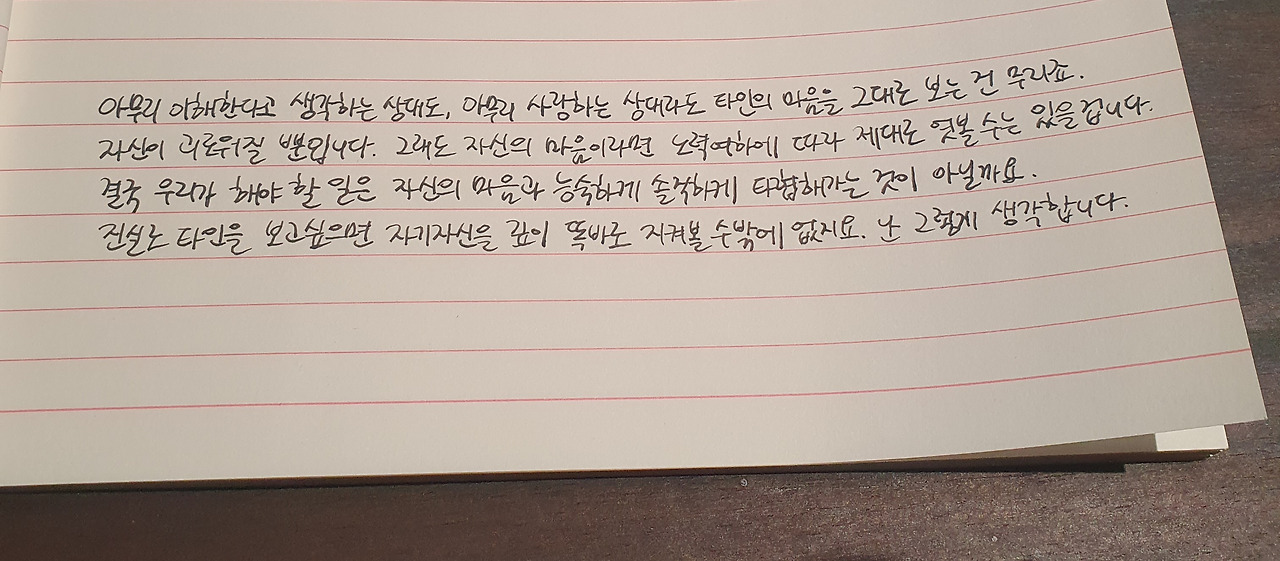 아무리 이해한다고 생각하는 상대도, 아무리 사랑하는 상대라도 타인의 마음을 그대로 보는 건 무리죠.
자신이 괴로워질 뿐입니다. 그래도 자신의 마음이라면 노력여하에 따라 제대로 엿볼 수는 있을겁니다.
결국 우리가 해야 할 일은 자신의 마음과 능숙하게 솔직하게 타협해가는 것이 아닐까요.
진실로 타인을 보고싶으면 자기자신을 깊이 똑바로 지켜볼 수밖에 없지요. 난 그렇게 생각합니다.